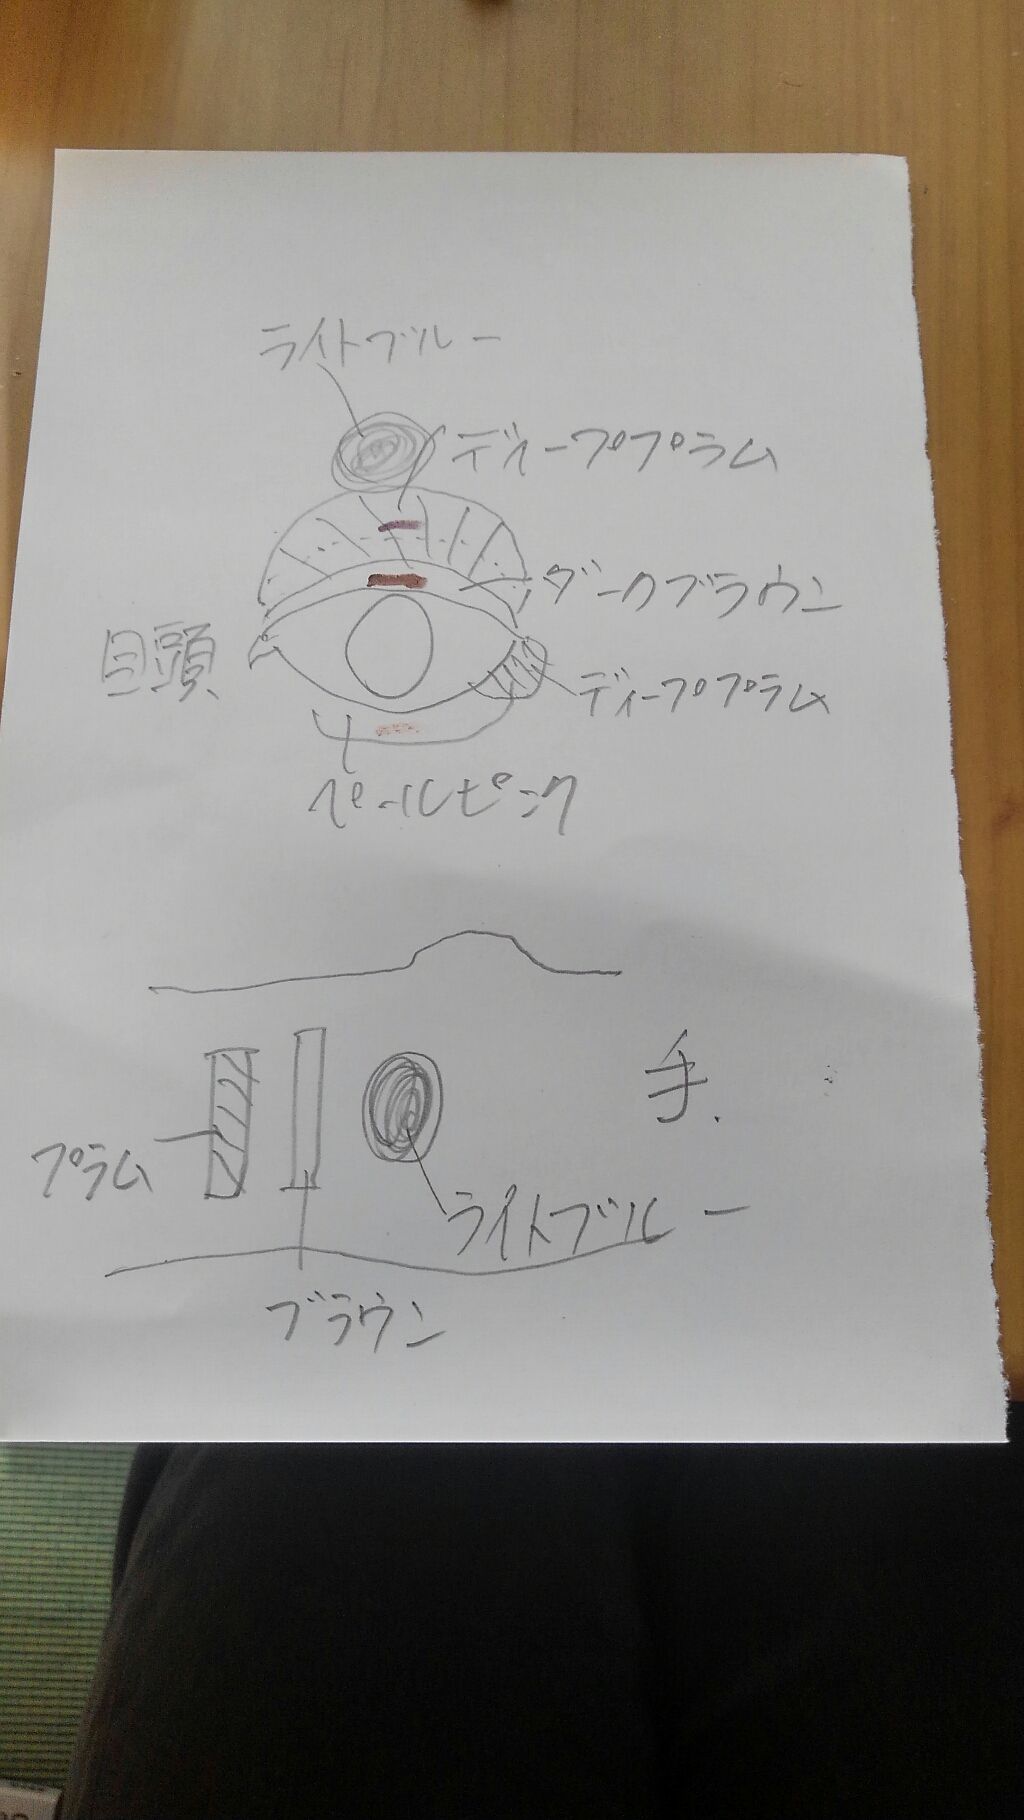 ライトブルー
ディーププラム
ダークブラウン
目頭
ディーププラム
ペールピンク
手.
プラム
ライトブルー
ブラウン